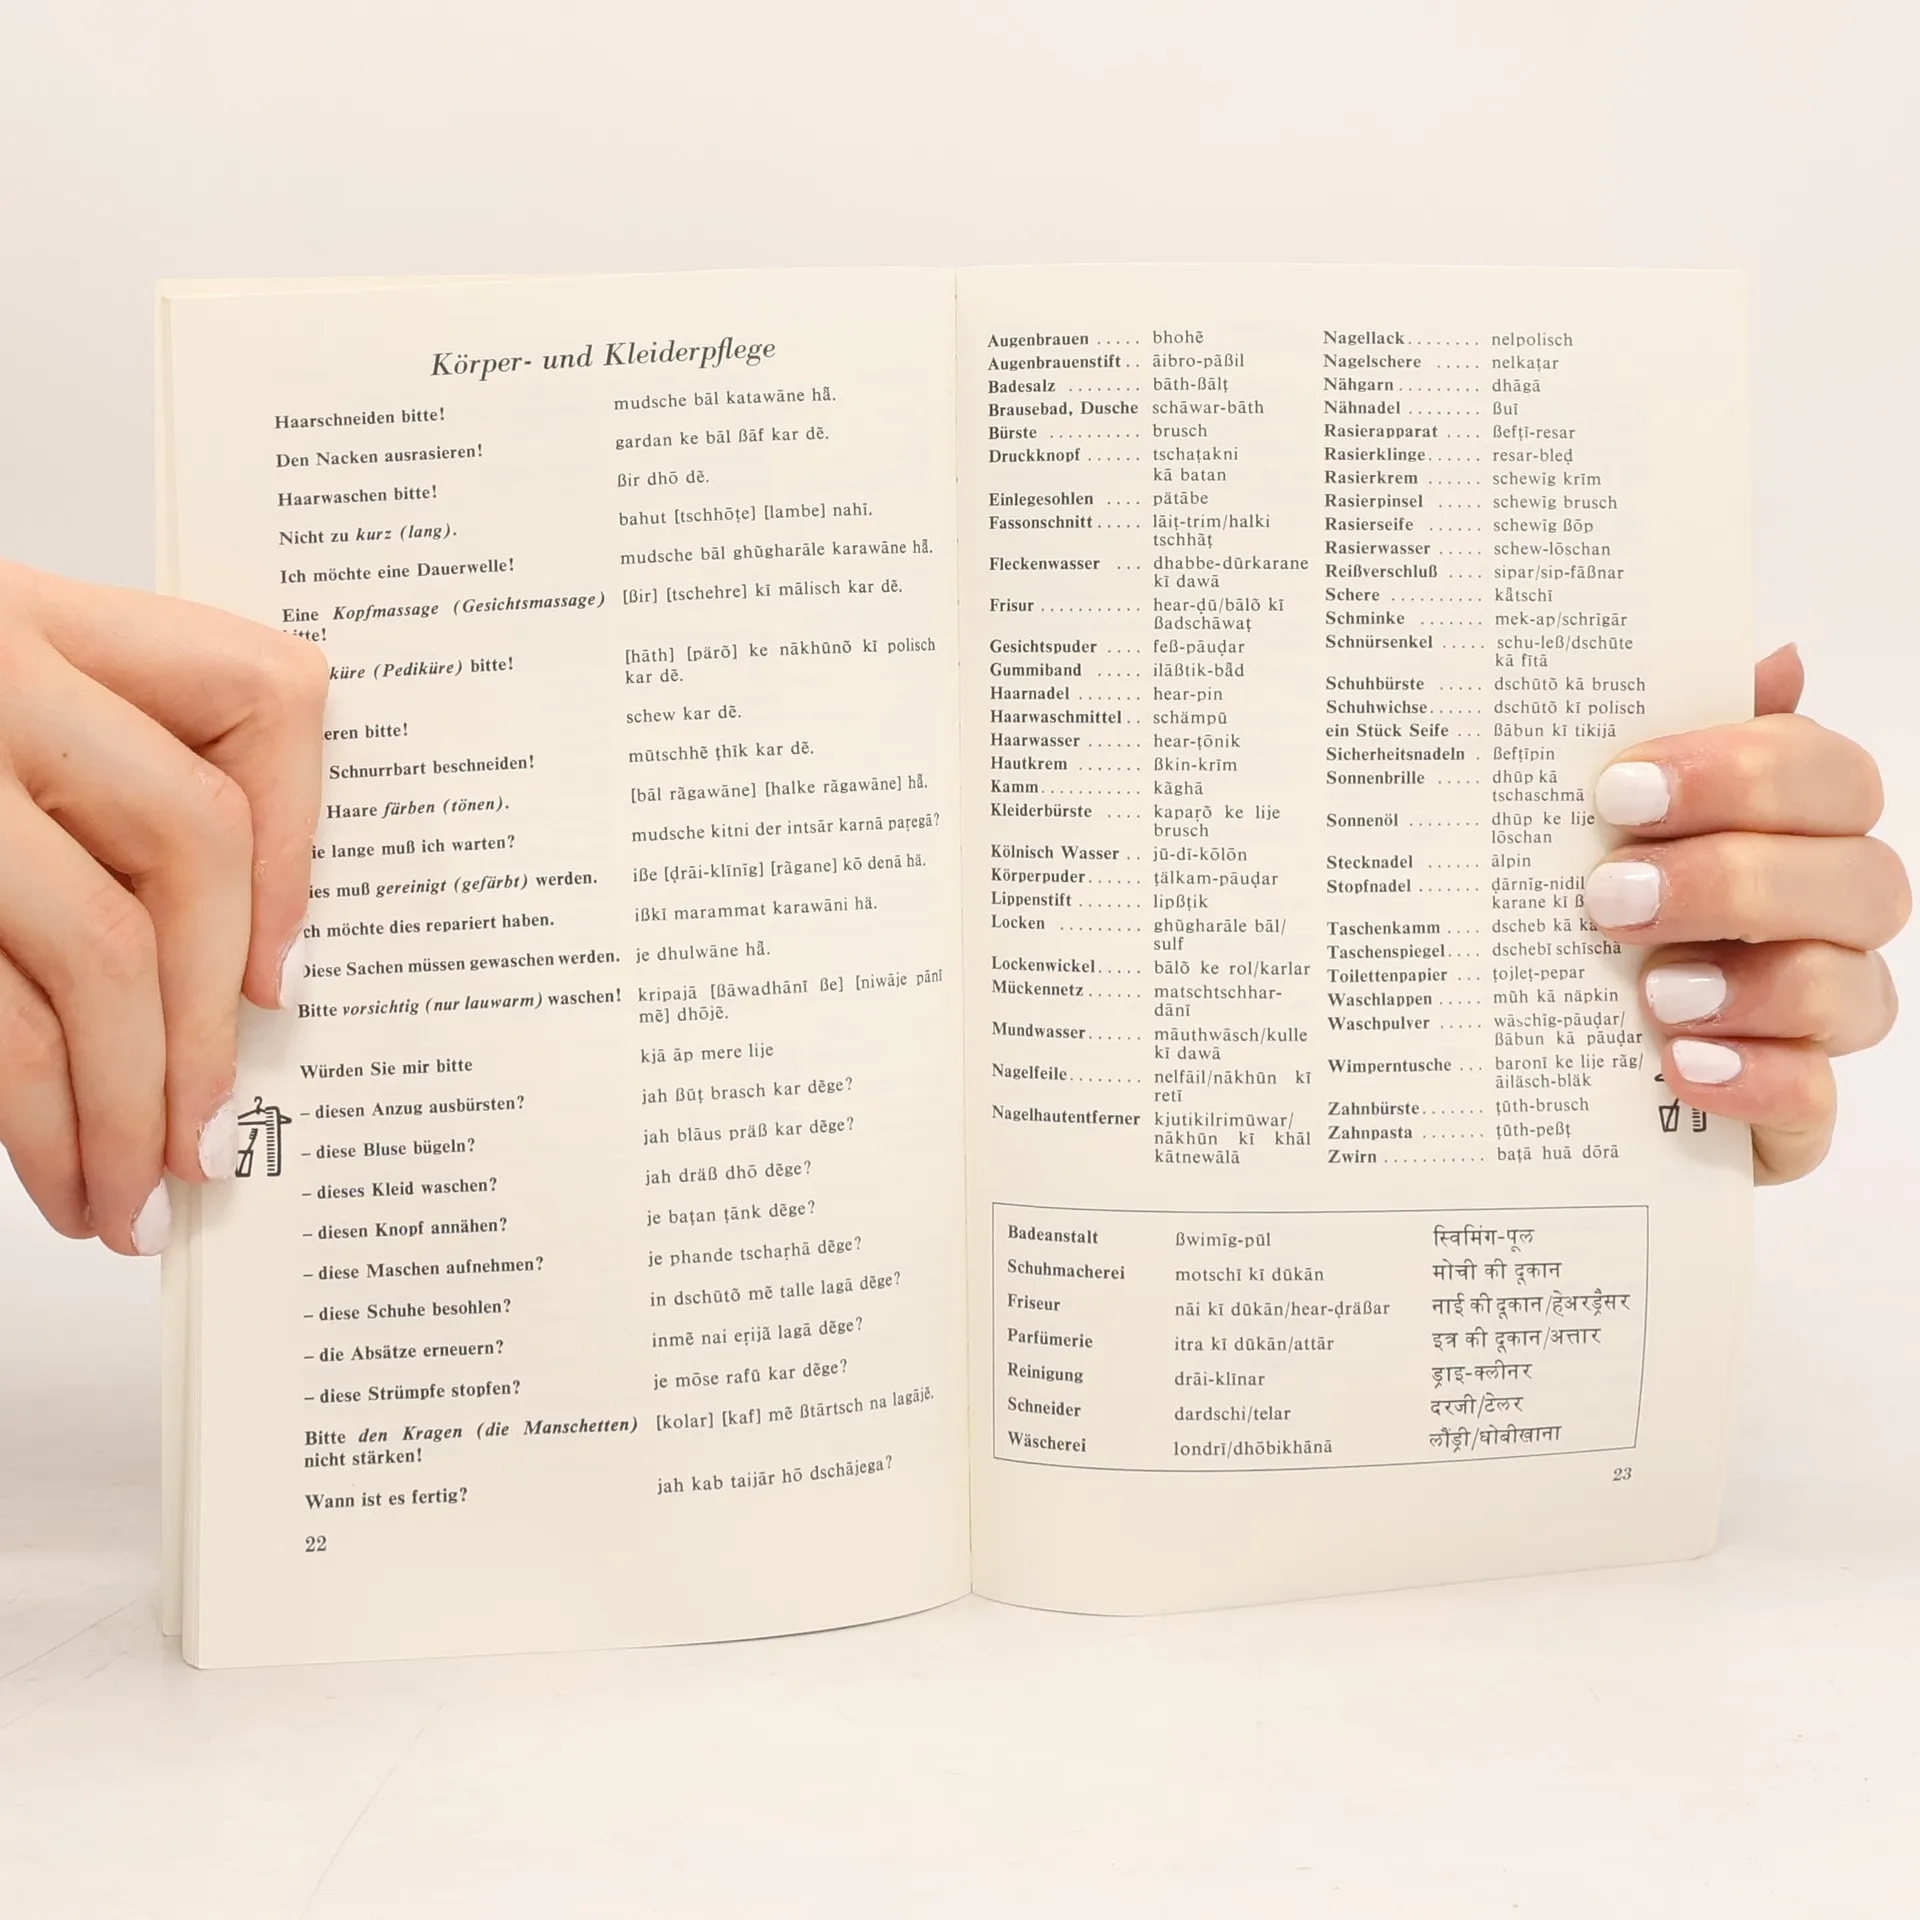 Körper- und Kleiderpflege
Haarschneiden bitte! mudsche bāl katawāne hå̃.
Den Nacken ausrasieren! gardan ke bāl ßāf kar dē̃.
Haarwaschen bitte! ßir dhō dē̃.
Nicht zu kurz (lang). bahut [tschhōṭe] [lambe] nahī̃.
Ich möchte eine Dauerwelle! mudsche bāl ghũgharāle karawāne hå̃.
Eine Kopfmassage (Gesichtsmassage) [ßir] [tschehre] kī mālisch kar dē̃.
küre (Pediküre) bitte! [hāth] [pärõ] ke nākhūnõ kī polisch
kar dē̃.
eren bitte! schew kar dē̃.
Schnurrbart beschneiden! mūtschhē̃ ṭhīk kar dē̃.
Haare färben (tönen). [bāl rãgawāne] [halke rãgawāne] hå̃.
ie lange muß ich warten? mudsche kitni der intsār karnā paṛegā?
ies muß gereinigt (gefärbt) werden. iße [ḍrāi-klīnīg] [rãgane] kō denā hä.
ch möchte dies repariert haben. ißkī marammat karawāni hä.
Diese Sachen müssen gewaschen werden. je dhulwāne hå̃.
Bitte vorsichtig (nur lauwarm) waschen! kripajā [ßāwadhānī ße] [niwāje pānī
mē̃] dhōjē̃.
Würden Sie mir bitte kjā āp mere lije
– diesen Anzug ausbürsten? jah ßūṭ brasch kar dē̃ge?
– diese Bluse bügeln? jah blāus präß kar dē̃ge?
– dieses Kleid waschen? jah dräß dhō dē̃ge?
– diesen Knopf annähen? je baṭan ṭānk dē̃ge?
– diese Maschen aufnehmen? je phande tschaṛhā dē̃ge?
– diese Schuhe besohlen? in dschūtõ mē̃ talle lagā dē̃ge?
– die Absätze erneuern? inmē̃ nai eṛijā̃ lagā dē̃ge?
– diese Strümpfe stopfen? je mōse rafū kar dē̃ge?
Bitte den Kragen (die Manschetten) [kolar] [kaf] mē̃ ßtārtsch na lagājē̃.
nicht stärken!
Wann ist es fertig? jah kab taijār hō dschājega?
22
Augenbrauen ..... bhohē̃
Augenbrauenstift .. āibro-pāßil
Badesalz ........ bāth-ßālṭ
Brausebad, Dusche schāwar-bāth
Bürste .......... brusch
Druckknopf ...... tschaṭakni
kā batan
Einlegesohlen .... pätābe
Fassonschnitt ..... lāiṭ-trim/halki
tschhāṭ
Fleckenwasser ... dhabbe-dūrkarane
kī dawā
Frisur ........... hear-ḍū/bālõ kī
ßadschāwaṭ
Gesichtspuder .... feß-pāuḍar
Gummiband ..... ilāßtik-bå̃d
Haarnadel ....... hear-pin
Haarwaschmittel .. schämpū
Haarwasser ...... hear-ṭōnik
Hautkrem ....... ßkin-krīm
Kamm........... kãghā
Kleiderbürste .... kapaṛõ ke lije
brusch
Kölnisch Wasser .. jū-dī-kōlōn
Körperpuder...... ṭälkam-pāuḍar
Lippenstift ....... lipßṭik
Locken ......... ghũgharāle bāl/
sulf
Lockenwickel..... bālõ ke rol/karlar
Mückennetz ...... matschtschhar-
dānī
Mundwasser...... māuthwāsch/kulle
kī dawā
Nagelfeile........ nelfāil/nākhūn kī
retī
Nagelhautentferner kjutikilrimūwar/
nākhūn kī khāl
kātnewālā
Nagellack........ nelpolisch
Nagelschere ..... nelkaṭar
Nähgarn ......... dhāgā
Nähnadel ........ ßuī
Rasierapparat .... ßefṭī-resar
Rasierklinge...... resar-bleḍ
Rasierkrem ...... schewīg krīm
Rasierpinsel ..... schewīg brusch
Rasierseife ...... schewīg ßōp
Rasierwasser ..... schew-lōschan
Reißverschluß .... sipar/sip-fāßnar
Schere .......... kå̃tschī
Schminke ....... mek-ap/schrīgār
Schnürsenkel ..... schu-leß/dschūte
kā fītā
Schuhbürste ..... dschūtõ kā brusch
Schuhwichse...... dschūtõ kī polisch
ein Stück Seife ... ßābun kī tikijā
Sicherheitsnadeln . ßefṭīpin
Sonnenbrille ..... dhūp kā
tschaschmā
Sonnenöl ........ dhūp ke lije
lōschan
Stecknadel ...... ālpin
Stopfnadel ....... ḍārnīg-nidil
karane kī
Taschenkamm .... dscheb kā
Taschenspiegel.... dschebī schīschā
Toilettenpapier ... ṭojleṭ-pepar
Waschlappen ..... mũh kā näpkin
Waschpulver ..... wāschīg-pāuḍar/
ßābun kā pāuḍar
Wimperntusche ... baronī ke lije rãg/
āiläsch-bläk
Zahnbürste....... ṭūth-brusch
Zahnpasta ....... ṭūth-peßṭ
Zwirn ........... baṭā huā dōrā
Badeanstalt ßwimīg-pūl स्विमिंग-पूल
Schuhmacherei motschī kī dūkān मोची की दूकान
Friseur nāi kī dūkān/hear-ḍräßar नाई की दूकान/हेअरड्रैसर
Parfümerie itra kī dūkān/attār इत्र की दूकान/अत्तार
Reinigung drāi-klīnar ड्राइ-क्लीनर
Schneider dardschi/telar दरजी/टेलर
Wäscherei londrī/dhōbikhānā लौंड्री/धोबीखाना
23